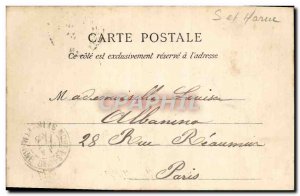 S et Marne
CARTE POSTALE
Ce côté est exclusivement réservé à l'adresse
Mademoiselle Louise
Albanino
28 Rue Réaumur
Paris